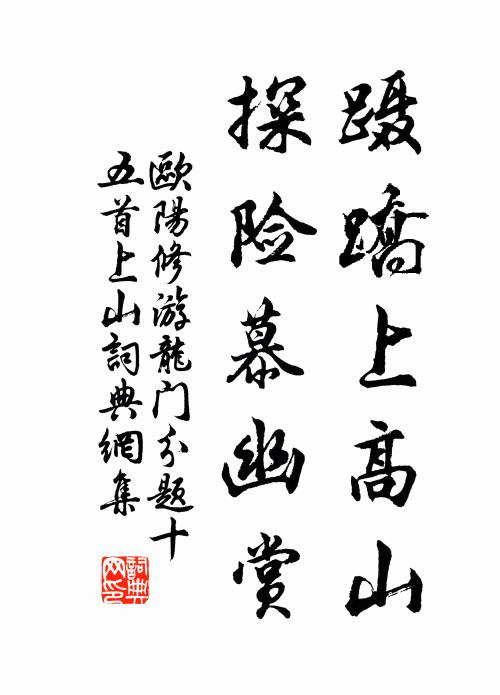 蹑蹻上高山
探险慕幽赏
歐陽修游龍门分题十
五首上山詞典網集
詞典网印